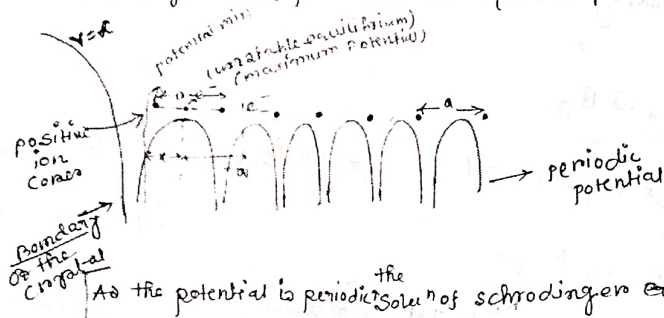 V=α
potential min
(unstable equilibrium)
(maximum potential)
e⁻
a
positive
ion
cores
x
a
periodic
potential
Boundary
of the
Crystal
As the potential is periodic the soluⁿ of schrodinger